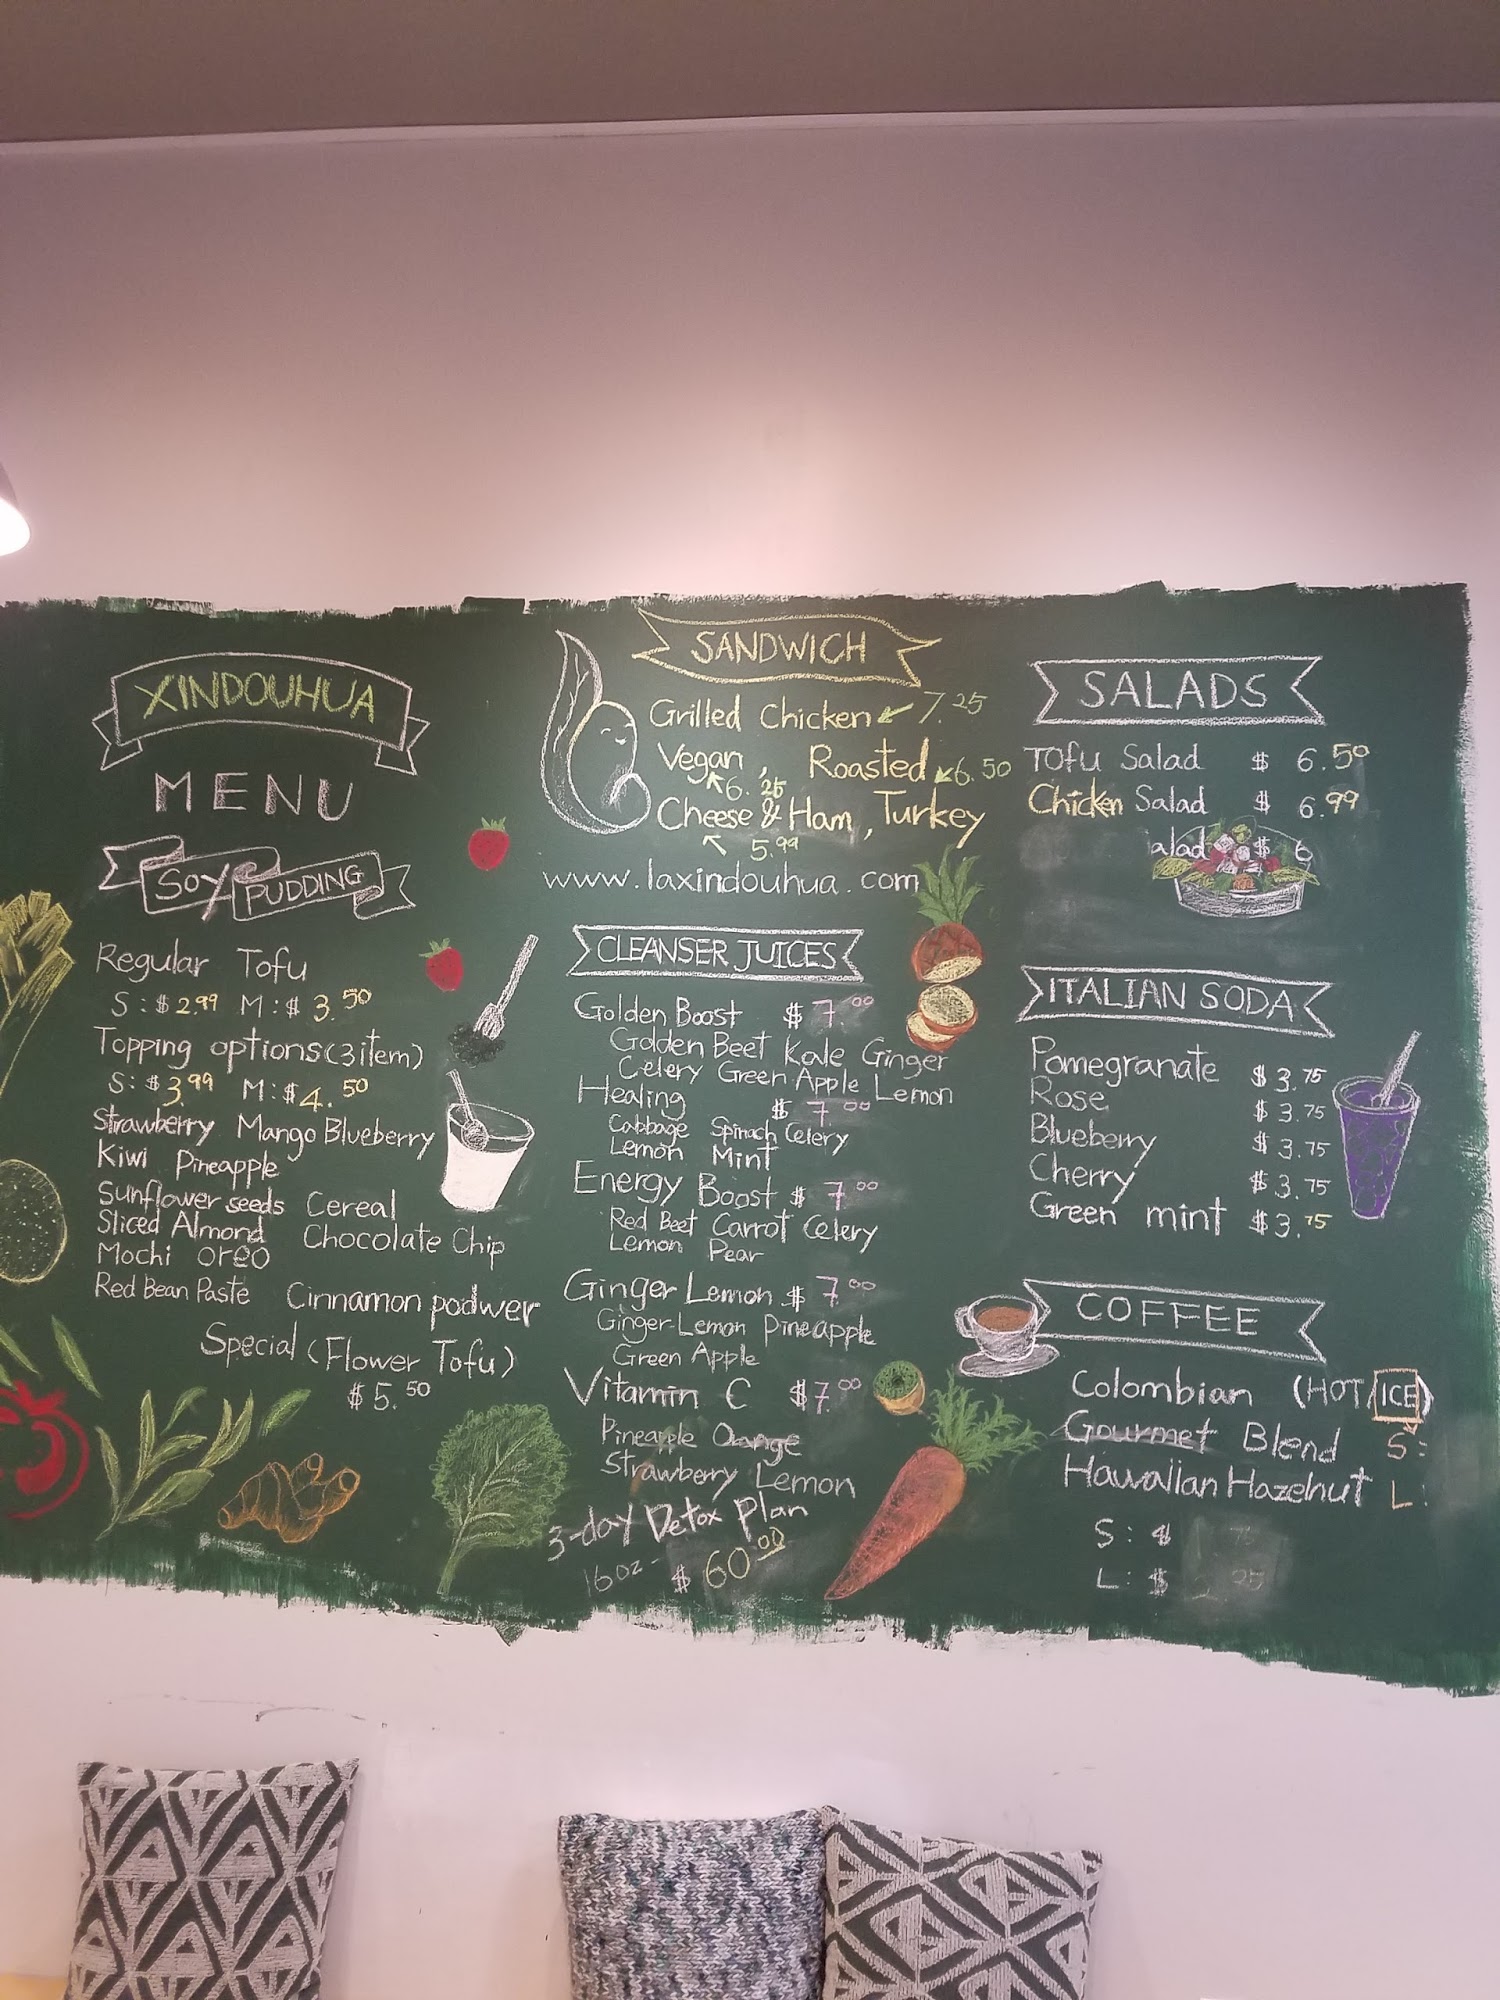 XINDOUHUA
MENU
SOY PUDDING
Regular Tofu
S: $2.99 M: $3.50
Topping options (3 item)
S: $3.99 M: $4.50
Strawberry Mango Blueberry
Kiwi Pineapple
Sunflower seeds Cereal
Sliced Almond Chocolate Chip
Mochi oreo
Red Bean Paste Cinnamon podwer
Special (Flower Tofu)
$5.50
SANDWICH
Grilled Chicken 7.25
Vegan, Roasted 6.50
6.25
Cheese & Ham, Turkey
5.99
www.laxindouhua.com
CLEANSER JUICES
Golden Boost $7.00
Golden Beet Kale Ginger
Celery Green Apple Lemon
Healing $7.00
Cabbage Spinach Celery
Lemon Mint
Energy Boost $7.00
Red Beet Carrot Celery
Lemon Pear
Ginger Lemon $7.00
Ginger-Lemon Pineapple
Green Apple
Vitamin C $7.00
Pineapple Orange
Strawberry Lemon
3-day Detox Plan
16oz - $60.00
SALADS
Tofu Salad $6.50
Chicken Salad $6.99
alad $6
ITALIAN SODA
Pomegranate $3.75
Rose $3.75
Blueberry $3.75
Cherry $3.75
Green mint $3.75
COFFEE
Colombian (HOT/ICE)
Gourmet Blend S:
Hawaiian Hazelnut L:
S: $
L: $